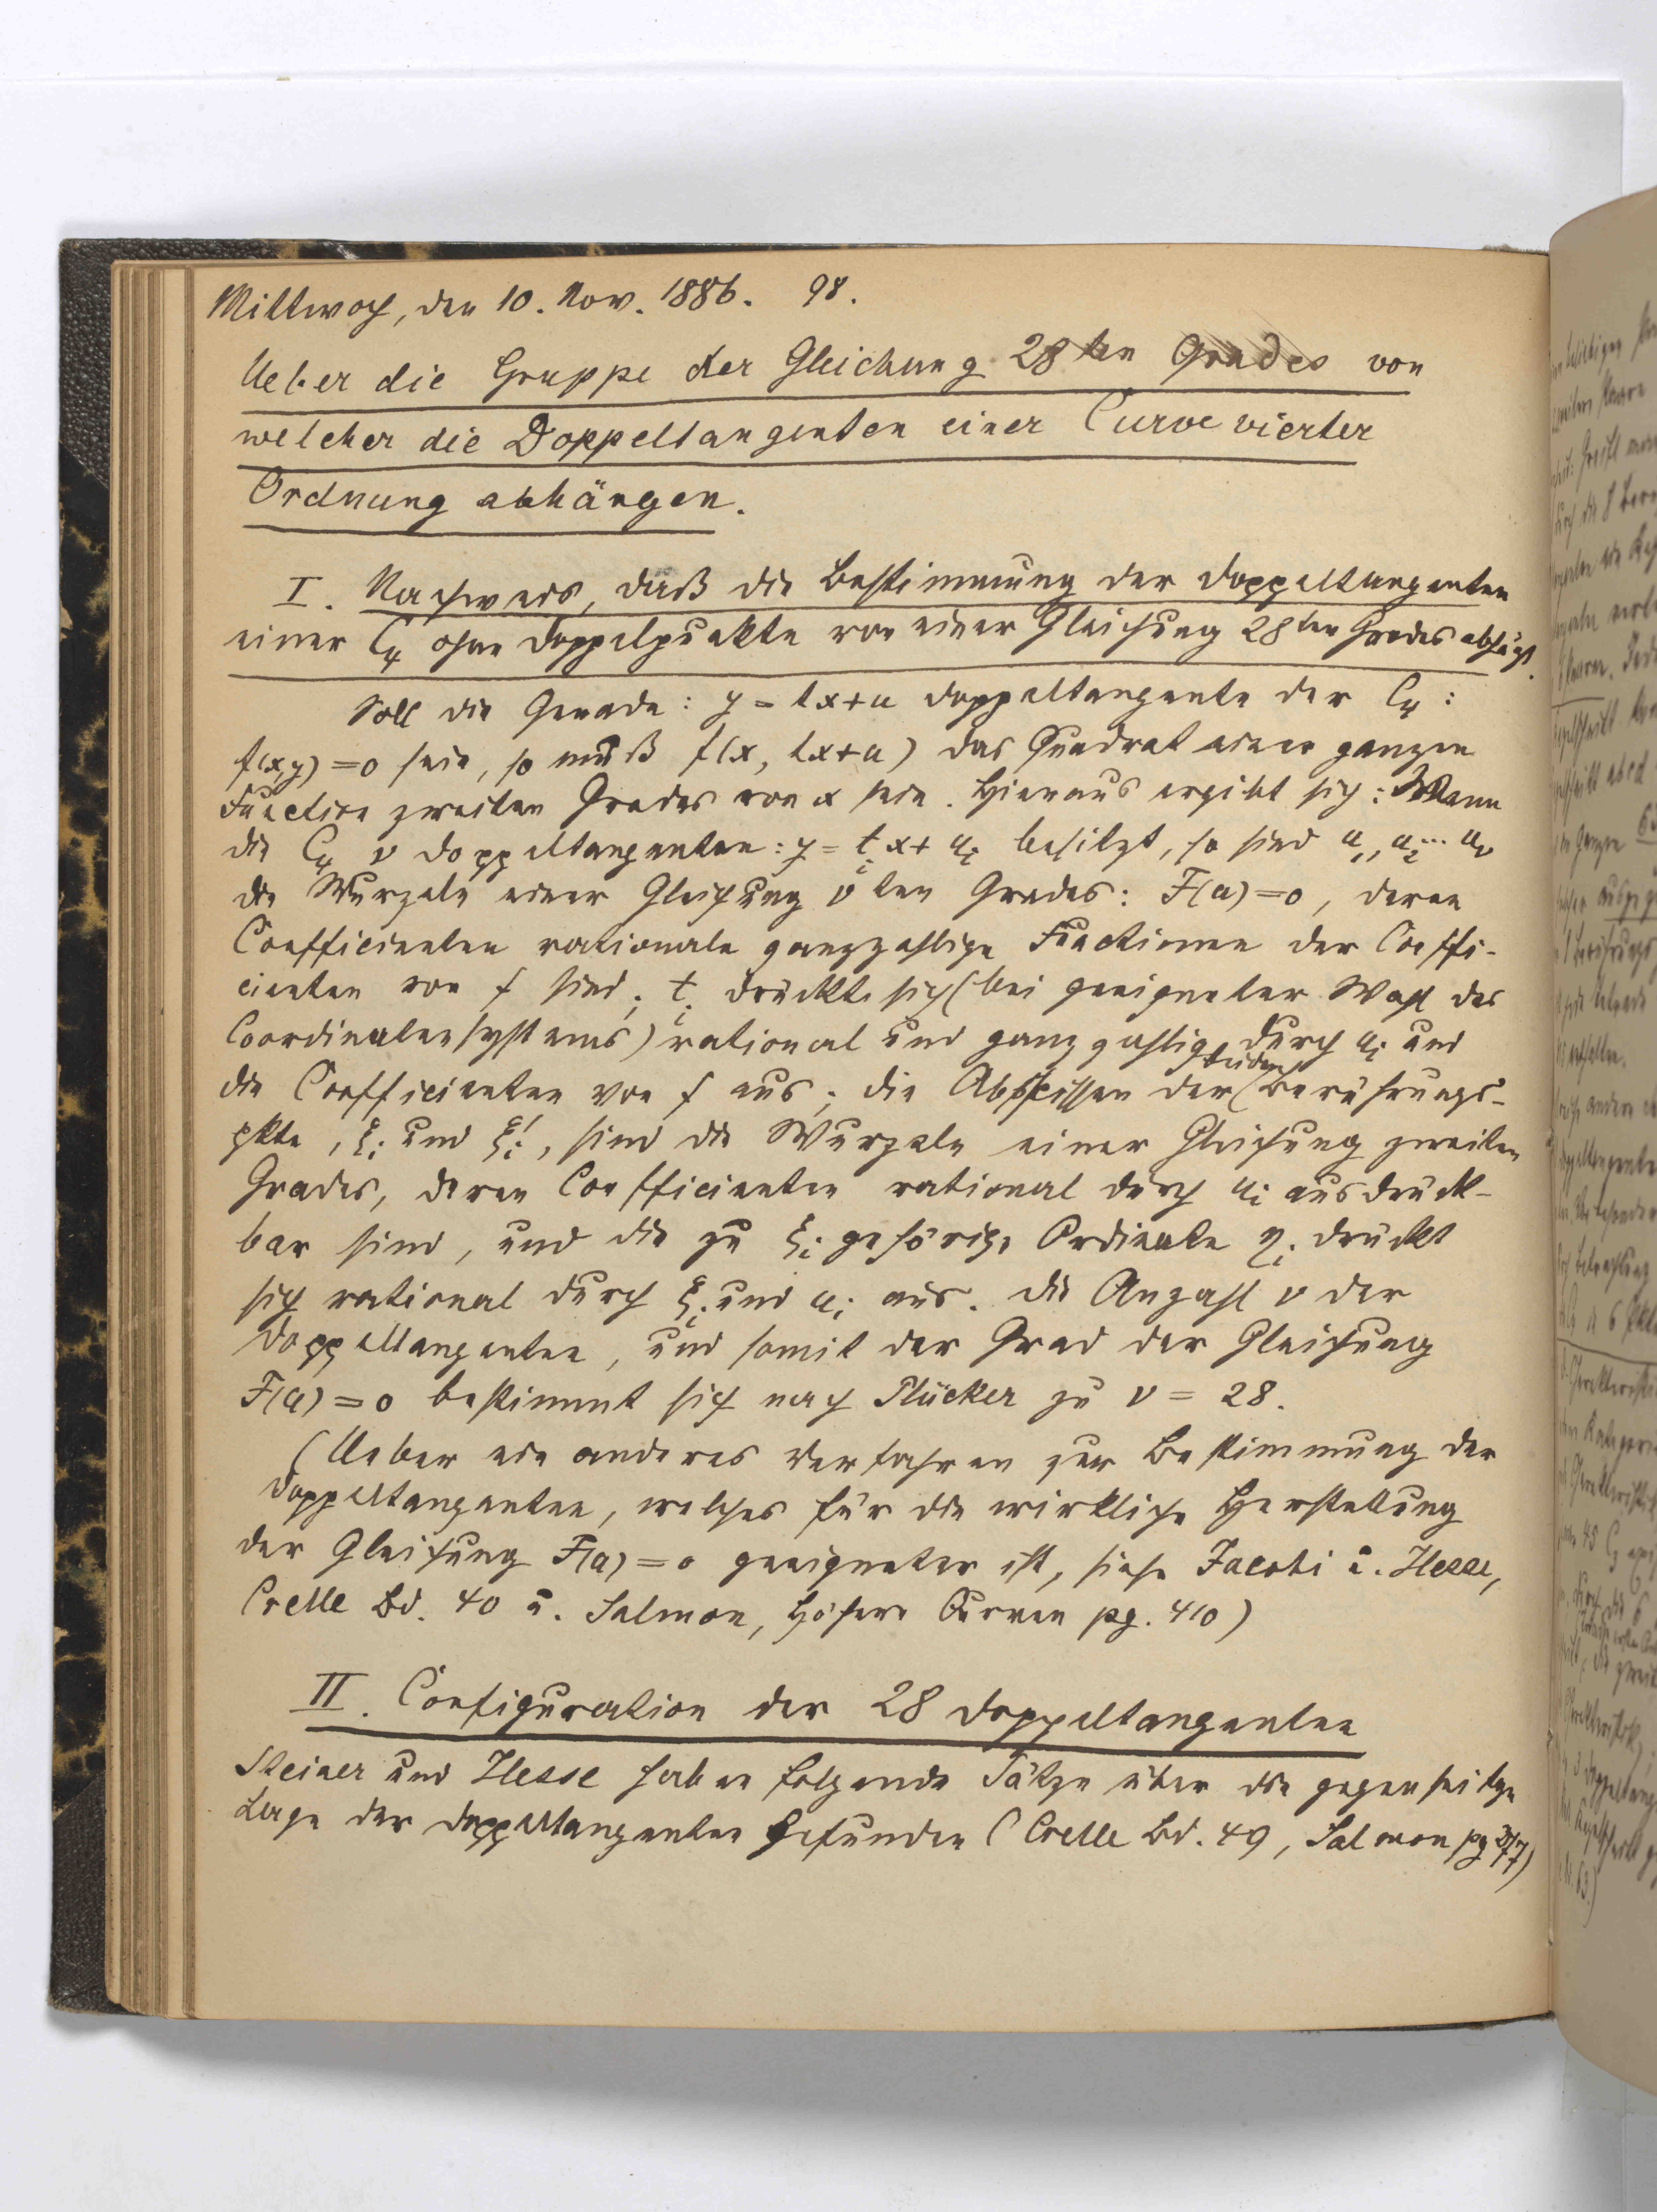 Mittwoch, den 10. Nov. 1886. 98.
Ueber die Gruppe der Gleichung 28ten Grades von
welcher die Doppeltangenten einer Curve vierter
Ordnung abhängen.
I. Nachweis, daß die Bestimmung der Doppeltangenten
einer C4 ohne Doppelpunkte von einer Gleichung 28ten Grades abhängt.
Soll die Gerade: y = tx+u Doppeltangente der C4:
f(x,y) = 0 sein, so muß f(x, tx+u) das Quadrat einer ganzen
Function zweiten Grades von x sein. Hieraus ergibt sich: Wenn
die C4 ν Doppeltangenten: y = tᵢx + uᵢ besitzt, so sind u₁, u₂ ... uν
die Wurzeln einer Gleichung νten Grades: F(u) = 0, deren
Coefficienten rationale ganzzahlige Functionen der Coeffi-
cienten von f sind; tᵢ drückt sich (bei geeigneter Wahl des
Coordinatensystems) rational und ganzzahlig durch uᵢ und
die Coefficienten von f aus; die Abscissen der beiden Berührungs-
pkte, ξᵢ und ξᵢ', sind die Wurzeln einer Gleichung zweiten
Grades, deren Coefficienten rational durch uᵢ ausdrück-
bar sind, und die zu ξᵢ gehörige Ordinate ηᵢ drückt
sich rational durch ξᵢ und uᵢ aus. Die Anzahl ν der
Doppeltangenten, und somit der Grad der Gleichung
F(u) = 0 bestimmt sich nach Plücker zu ν = 28.
(Ueber ein anderes Verfahren zur Bestimmung der
Doppeltangenten, welches für die wirkliche Herstellung
der Gleichung F(u) = 0 geeigneter ist, siehe Jacobi u. Hesse,
Crelle Bd. 40 u. Salmon, Höhere Curven pg. 410)
II. Configuration der 28 Doppeltangenten
Steiner und Hesse haben folgende Sätze über die gegenseitige
Lage der Doppeltangenten gefunden (Crelle Bd. 49, Salmon pg